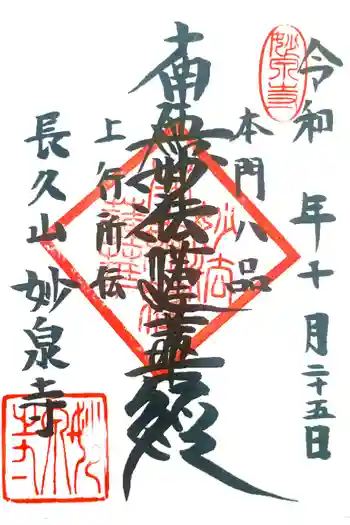 令和 年十月二十五日
本門八品
南無妙法蓮華経
上行所伝
長久山 妙泉寺
妙泉寺
妙泉寺